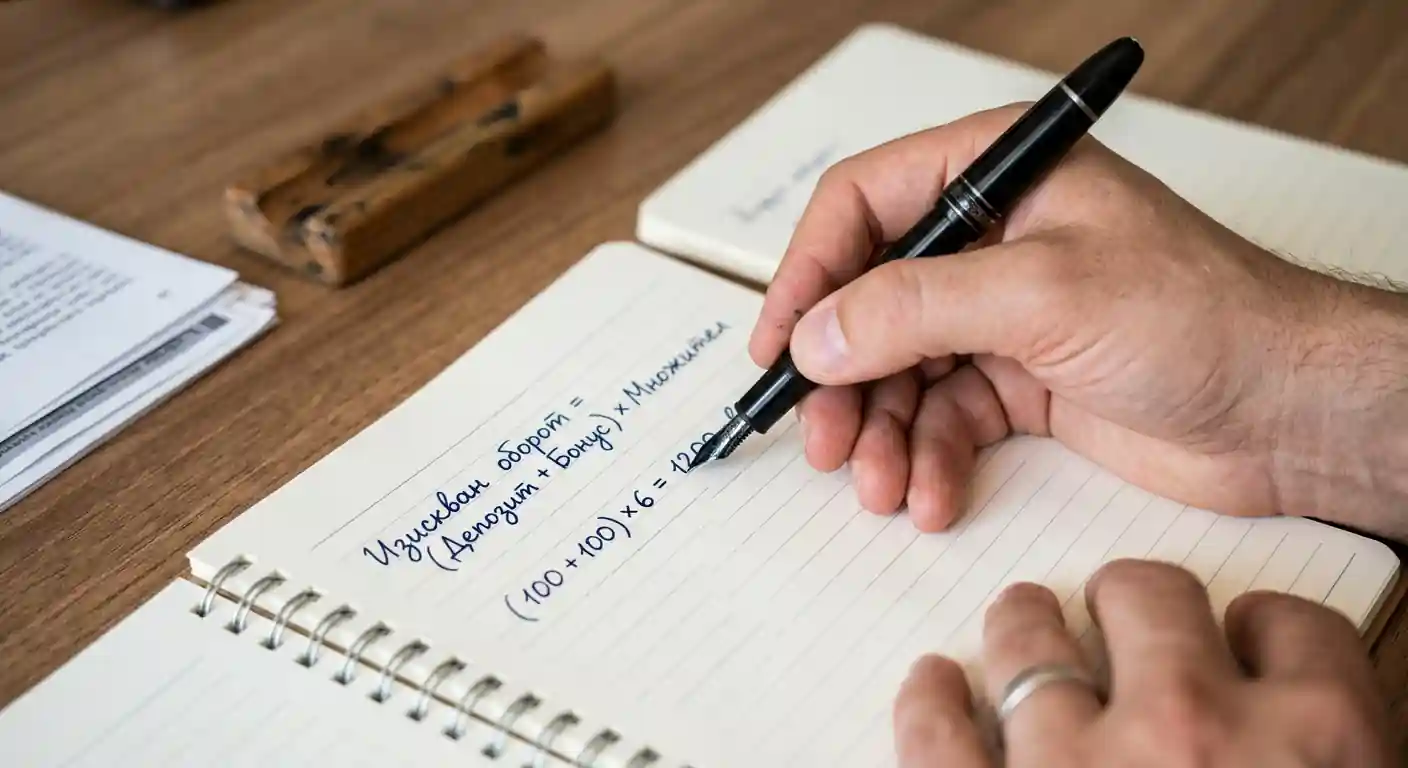 Изискван оборот =
(Депозит + Бонус) × Множител
(100 + 100) × 6 = 1200